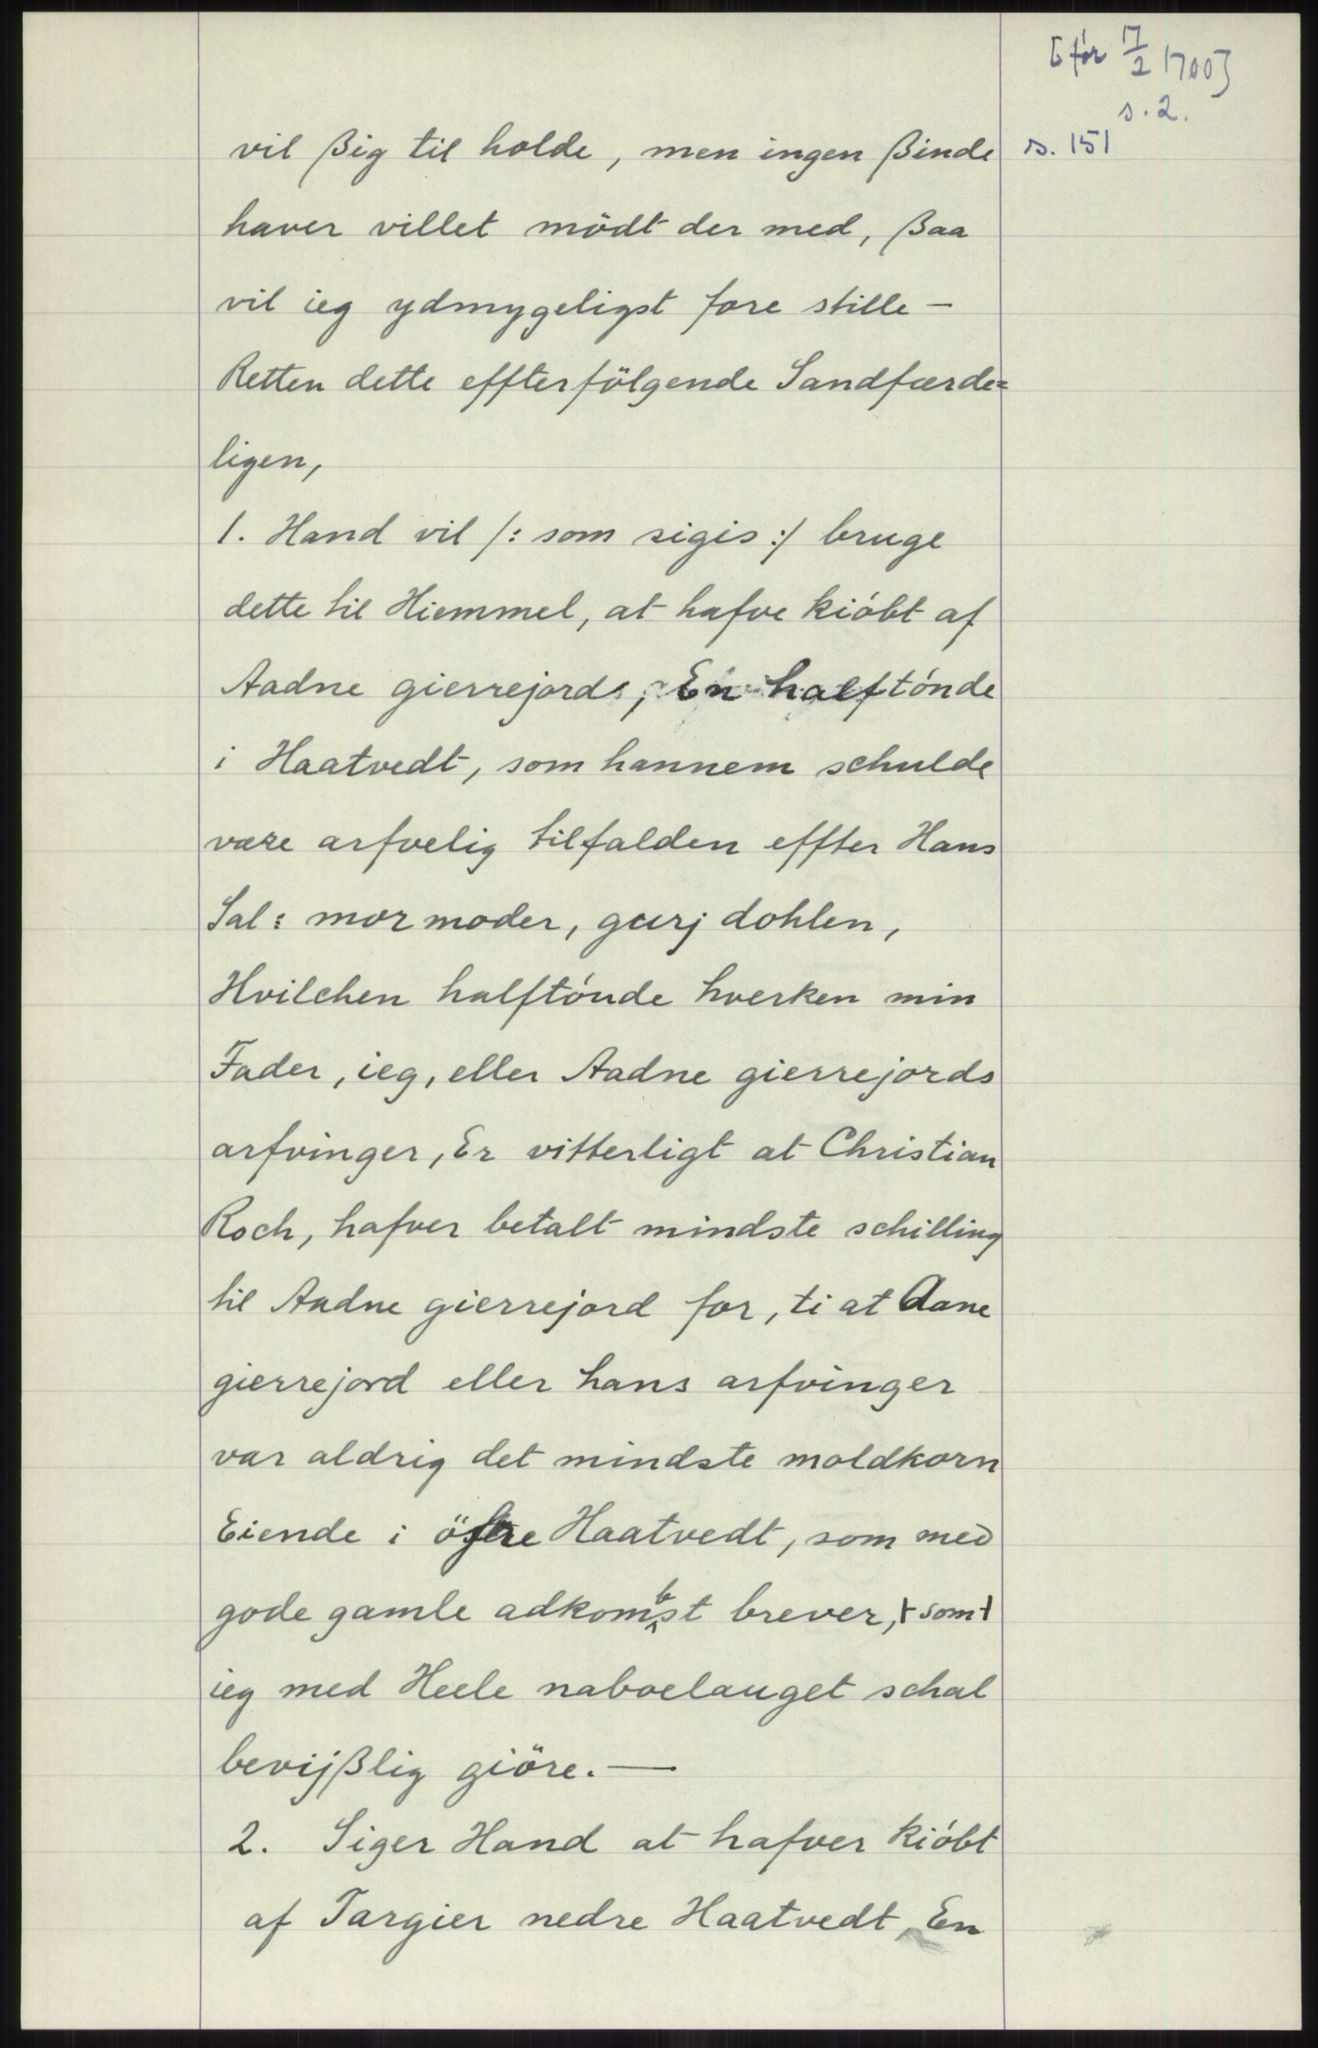 [før 17/2 1700]
s. 2.
s. 151
vil ßig til holde, men ingen ßinde
haver villet mödt der med, ßaa
vil ieg ydmygeligst fore stille —
Retten dette effterfölgende Sandfærde=
ligen,
1. Hand vil /: som sigis :/ bruge
dette til Hiemmel, at hafve kióbt af
Aadne gierrejord, En halftónde
i Haatvedt, som hannem schulde
være arfvelig tilfalden effter Hans
Sal: mormoder, gurj dohlen,
Hvilchen halftónde hverken min
Fader, ieg, eller Aadne gierrejords
arfvinger, Er vitterligt at Christian
Roch, hafver betalt mindste schilling
til Aadne gierrejord for, ti at Aane
gierrejord eller hans arfvinger
var aldrig det mindste moldkorn
Eiende i öfre Haatvedt, som med
gode gamle adkombst brever, + som +
ieg med Heele naboelauget schal
bevijßlig giöre. —
2. Siger Hand at hafver kióbt
af Targier nedre Haatvedt, En